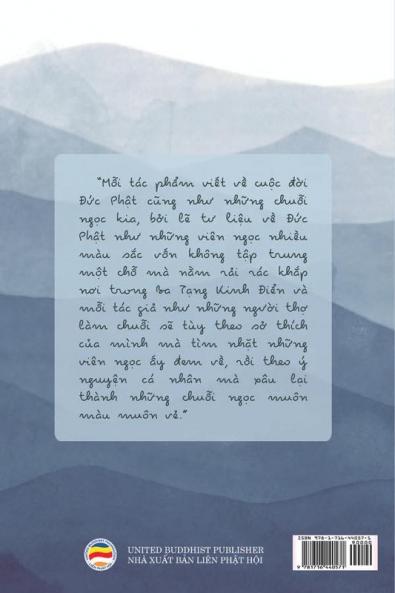 "Mỗi tác phẩm viết về cuộc đời
Đức Phật cũng như những chuỗi
ngọc kia, bởi lẽ tư liệu về Đức
Phật như những viên ngọc nhiều
màu sắc vốn không tập trung
một chỗ mà nằm rải rác khắp
nơi trong Ba Tạng Kinh Điển và
mỗi tác giả như những người thợ
làm chuỗi sẽ tùy theo sở thích
của mình mà tìm nhặt những
viên ngọc ấy đem về, rồi theo ý
nguyện cá nhân mà xâu lại
thành những chuỗi ngọc muôn
màu muôn vẻ."
ISBN 978-1-716-44057-1
90000
9 781716 440571
UNITED BUDDHIST PUBLISHER
NHÀ XUẤT BẢN LIÊN PHẬT HỘI